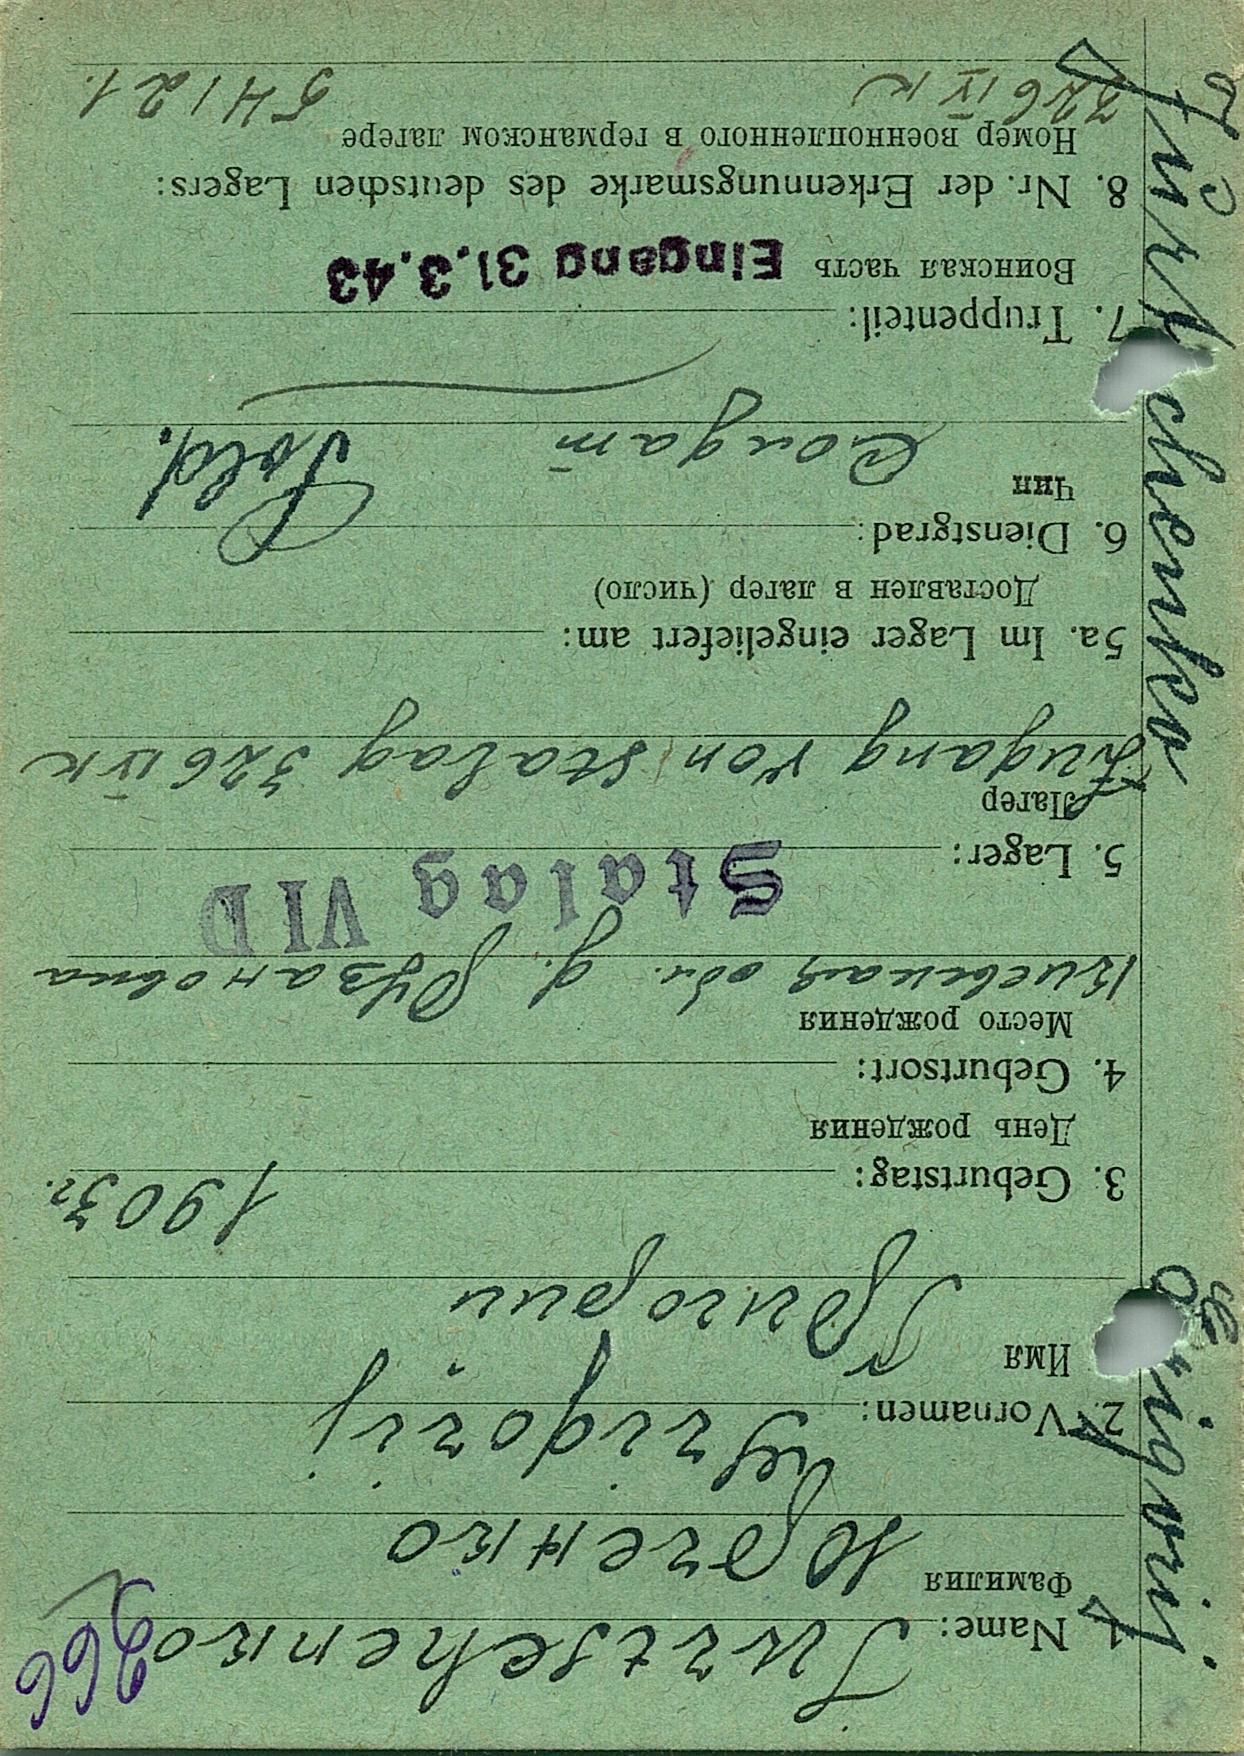 266
1. Name: Jurtschenko
Фамилия Юрченко
2. Vornamen: Grigorij
Имя Григории
3. Geburtstag: 1903 г.
День рождения
4. Geburtsort:
Место рождения
Киевская обл. д.
Stalag VI D
5. Lager:
Лагер
Zugang von Stalag 326 VI K
5a. Im Lager eingeliefert am:
Доставлен в лагер (число)
6. Dienstgrad: Sold.
Чин
солдат
7. Truppenteil:
Воинская часть Eingang 31.3.43
8. Nr. der Erkennungsmarke des deutschen Lagers:
Номер военнопленного в германском лагере
326 VI K 54121.
Jurtschenko
Grigorij